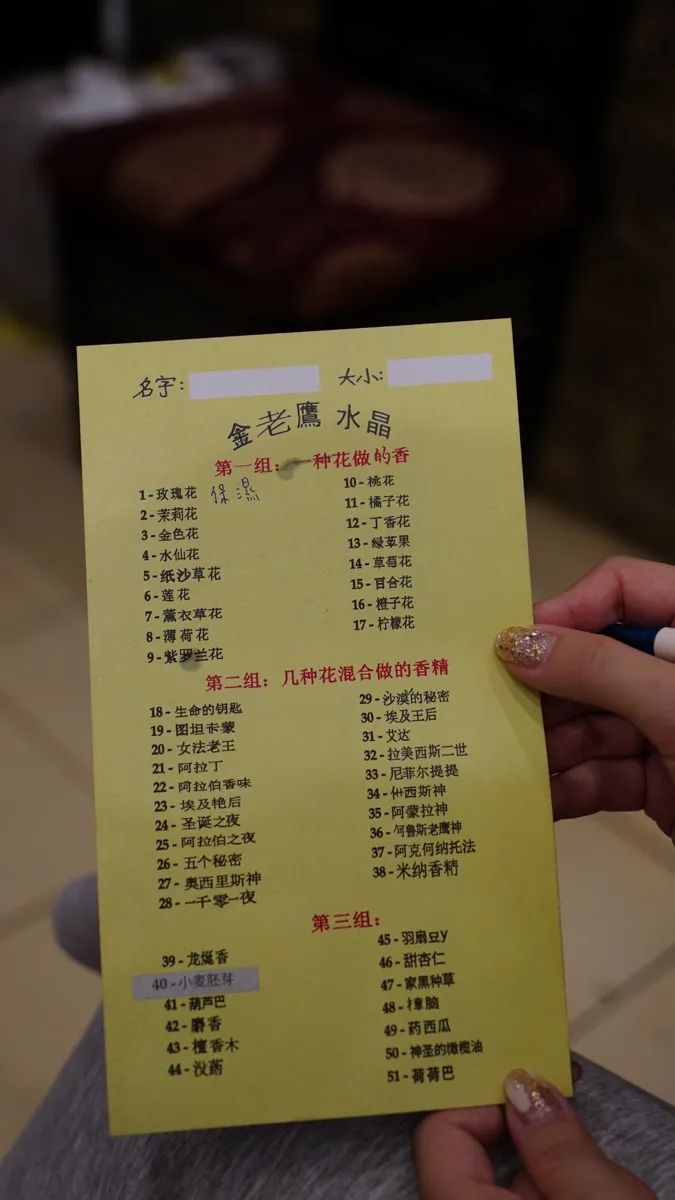 名字: 大小:
金老鷹 水晶
第一组: 一种花做的香
1 - 玫瑰花 保濕
2 - 茉莉花
3 - 金色花
4 - 水仙花
5 - 纸沙草花
6 - 莲花
7 - 薰衣草花
8 - 薄荷花
9 - 紫罗兰花
10 - 桃花
11 - 橘子花
12 - 丁香花
13 - 绿苹果
14 - 草莓花
15 - 百合花
16 - 橙子花
17 - 柠檬花
第二组: 几种花混合做的香精
18 - 生命的钥匙
19 - 图坦卡蒙
20 - 女法老王
21 - 阿拉丁
22 - 阿拉伯香味
23 - 埃及艳后
24 - 圣诞之夜
25 - 阿拉伯之夜
26 - 五个秘密
27 - 奥西里斯神
28 - 一千零一夜
29 - 沙漠的秘密
30 - 埃及王后
31 - 艾达
32 - 拉美西斯二世
33 - 尼菲尔提提
34 - 西斯神
35 - 阿蒙拉神
36 - 何鲁斯老鹰神
37 - 阿克何纳托法
38 - 米纳香精
第三组:
39 - 龙涎香
40 - 小麦胚芽
41 - 葫芦巴
42 - 麝香
43 - 檀香木
44 - 没药
45 - 羽扇豆y
46 - 甜杏仁
47 - 家黑种草
48 - 樟脑
49 - 药西瓜
50 - 神圣的橄榄油
51 - 荷荷巴